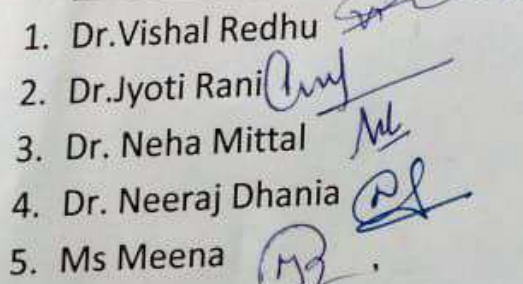 1. Dr.Vishal Redhu
2. Dr.Jyoti Rani
3. Dr. Neha Mittal
4. Dr. Neeraj Dhania
5. Ms Meena